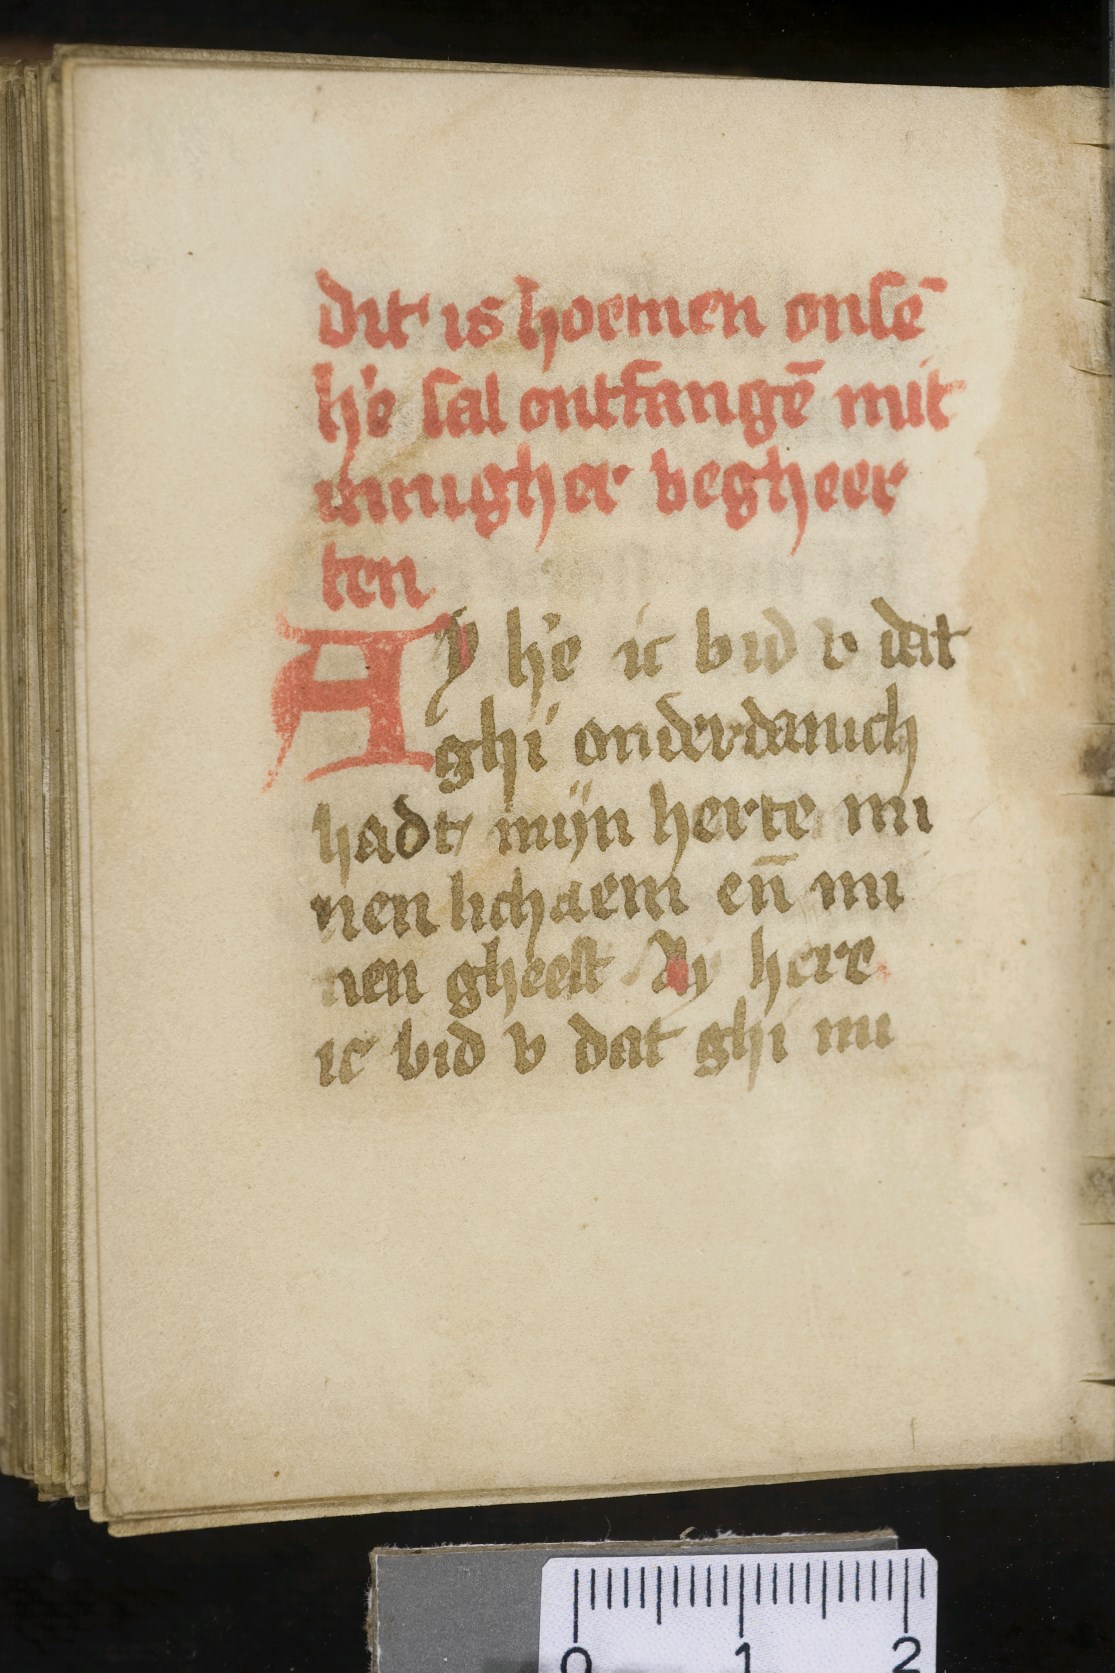 dit is hoemen onsē
h'e sal ontfangē mit
innigher begheer
ten
Ay h'e ic bid v dat
ghi onderdanich
hadt mijn herte mi
nen lichaem en̄ mi
nen gheest Ay here
ic bid v dat ghi mi
0 1 2